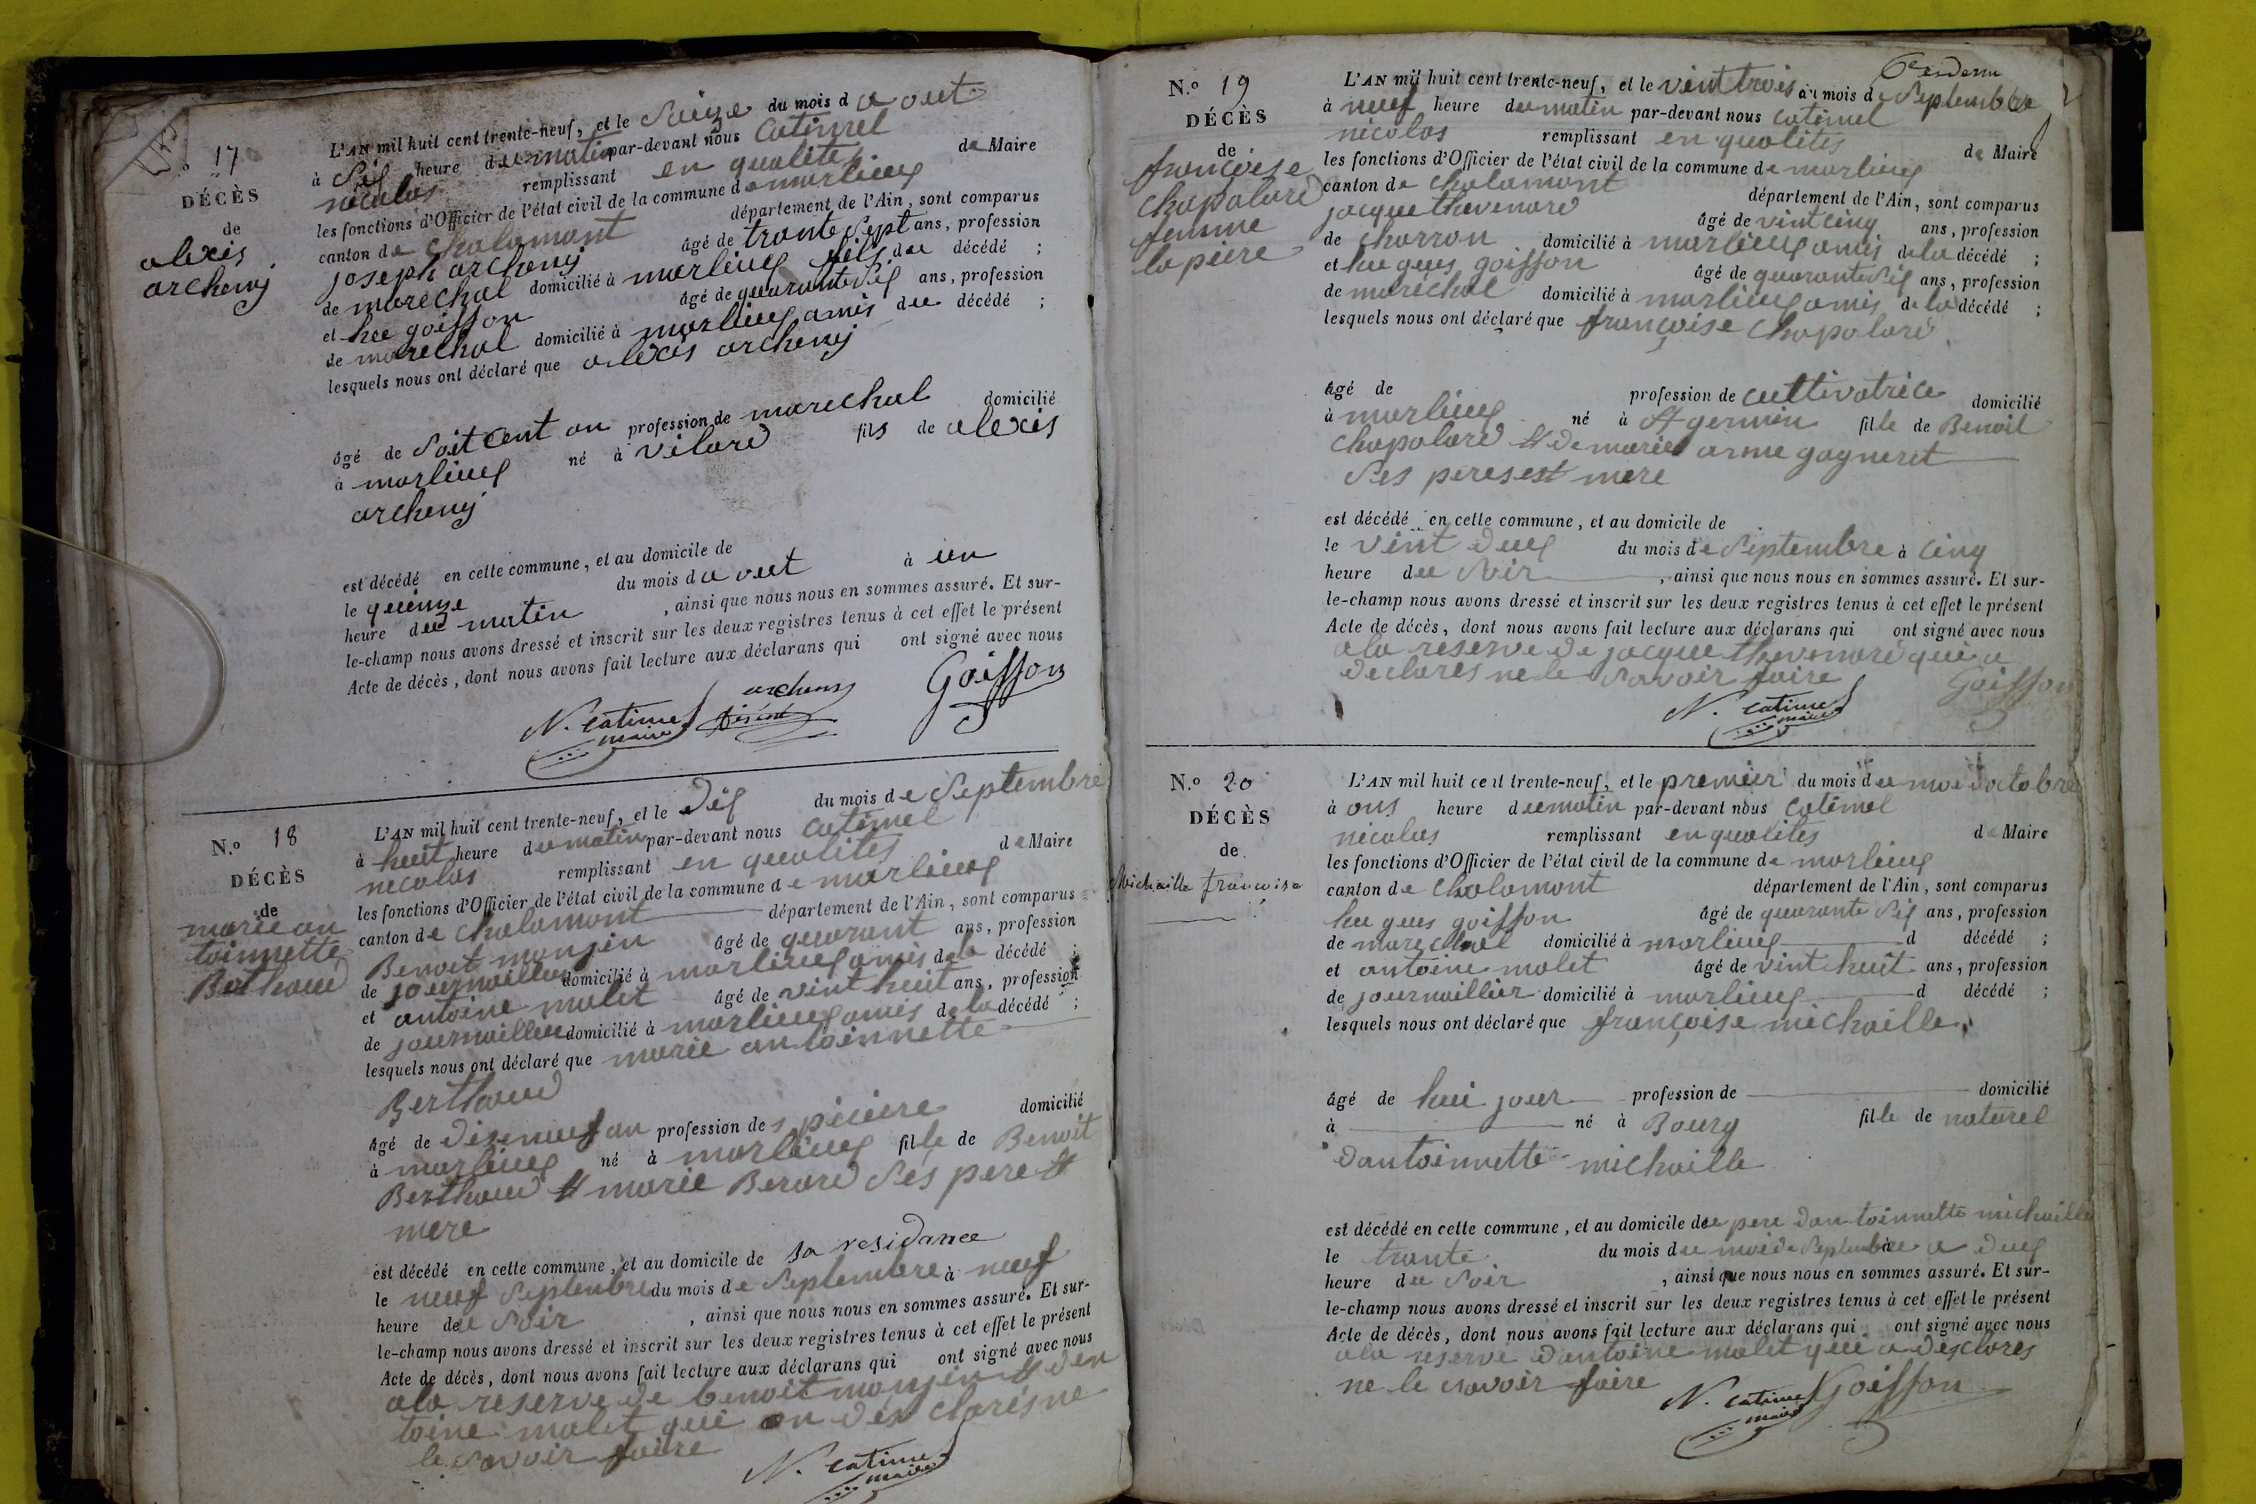 N.º 17
DÉCÈS
de
alexis
archeny
L'AN mil huit cent trente-neuf, et le Seize du mois d a out
à Six heure du matin par-devant nous Catimel
nicolas remplissant en qualites de Maire
les fonctions d'Officier de l'état civil de la commune de marlieux
canton de chalamont département de l'Ain, sont comparus
joseph archeny âgé de trante Sept ans, profession
de marechal domicilié à marlieux fils du décédé ;
et hu goiffon âgé de quarante Six ans, profession
de marechal domicilié à marlieux amis du décédé ;
lesquels nous ont déclaré que alexis archeny
âgé de Soitcent an profession de marechal domicilié
à marlieux né à vilard fils de alexis
archeny
est décédé en cette commune, et au domicile de
le quinze du mois d a out à un
heure du matin , ainsi que nous nous en sommes assuré. Et sur-
le-champ nous avons dressé et inscrit sur les deux registres tenus à cet effet le présent
Acte de décès, dont nous avons fait lecture aux déclarans qui ont signé avec nous
N. Catimel maire archeny Goiffon
N.º 18
DÉCÈS
de
marie an
toinnette
Berthaud
L'AN mil huit cent trente-neuf, et le dix du mois de Septembre
à huit heure du matin par-devant nous Catimel
nicolas remplissant en qualites de Maire
les fonctions d'Officier de l'état civil de la commune de marlieux
canton de chalamont département de l'Ain, sont comparus
Benoit monjin âgé de quarant ans, profession
de journaillier domicilié à marlieux amis de la décédé ;
et antoine malet âgé de vint huit ans, profession
de journaillier domicilié à marlieux amis de la décédé ;
lesquels nous ont déclaré que marie antoinnette
Berthaud
âgé de dixneuf an profession de s piciere domicilié
à marlieux né à marlieux fille de Benoit
Berthaud et marie Berard Ses pere et
mere
est décédé en cette commune, et au domicile de sa residance
le neuf Septembre du mois de Septembre à neuf
heure du Soir , ainsi que nous nous en sommes assuré. Et sur-
le-champ nous avons dressé et inscrit sur les deux registres tenus à cet effet le présent
Acte de décès, dont nous avons fait lecture aux déclarans qui ont signé avec nous
ala reserve de benoit monjin et dan
toine malet qui on des clarés ne
le Savoir faire
N. Catimel maire
N.º 19
DÉCÈS
de
françoise
Chapolard
femme
lapiere
L'AN mil huit cent trente-neuf, et le vint trois du mois de Septembre
à neuf heure du matin par-devant nous Catimel
nicolas remplissant en qualites de Maire
les fonctions d'Officier de l'état civil de la commune de marlieux
canton de chalamont département de l'Ain, sont comparus
jacque thevenard âgé de vint cinq ans, profession
de charron domicilié à marlieux amis de la décédé ;
et hu gues goiffon âgé de quarante Six ans, profession
de maréchal domicilié à marlieux amis de la décédé ;
lesquels nous ont déclaré que françoise Chapolard
âgé de profession de cultivatrice domicilié
à marlieux né à St germin fille de Benoit
chapolard et de marie anne gagneret
Ses peres et mere
est décédé en cette commune, et au domicile de
le vint deux du mois de Septembre à cinq
heure du Soir , ainsi que nous nous en sommes assuré. Et sur-
le-champ nous avons dressé et inscrit sur les deux registres tenus à cet effet le présent
Acte de décès, dont nous avons fait lecture aux déclarans qui ont signé avec nous
ala reserve de jacque thevenard qui a
declarés ne le Savoir faire Goiffon
N. Catimel maire
N.º 20
DÉCÈS
de
Michaille francoise
L'AN mil huit cent trente-neuf, et le premier du mois du moi doctobre
à ons heure du matin par-devant nous Catimel
nicolas remplissant en qualites de Maire
les fonctions d'Officier de l'état civil de la commune de marlieux
canton de chalamont département de l'Ain, sont comparus
hu gues goiffon âgé de quarante Six ans, profession
de marechal domicilié à marlieux d décédé ;
et antoine malet âgé de vint huit ans, profession
de journaillier domicilié à marlieux d décédé ;
lesquels nous ont déclaré que françoise michaille
âgé de hui jour profession de domicilié
à né à Bourg fille de naturel
dantoinnette michaille
est décédé en cette commune, et au domicile du pere dan toinnette michaille
le trante du mois du moi de Septembre à deux
heure du Soir , ainsi que nous nous en sommes assuré. Et sur-
le-champ nous avons dressé et inscrit sur les deux registres tenus à cet effet le présent
Acte de décès, dont nous avons fait lecture aux déclarans qui ont signé avec nous
ala reserve dantoine malet qui a desclares
ne le Savoir faire
N. Catimel maire goiffon